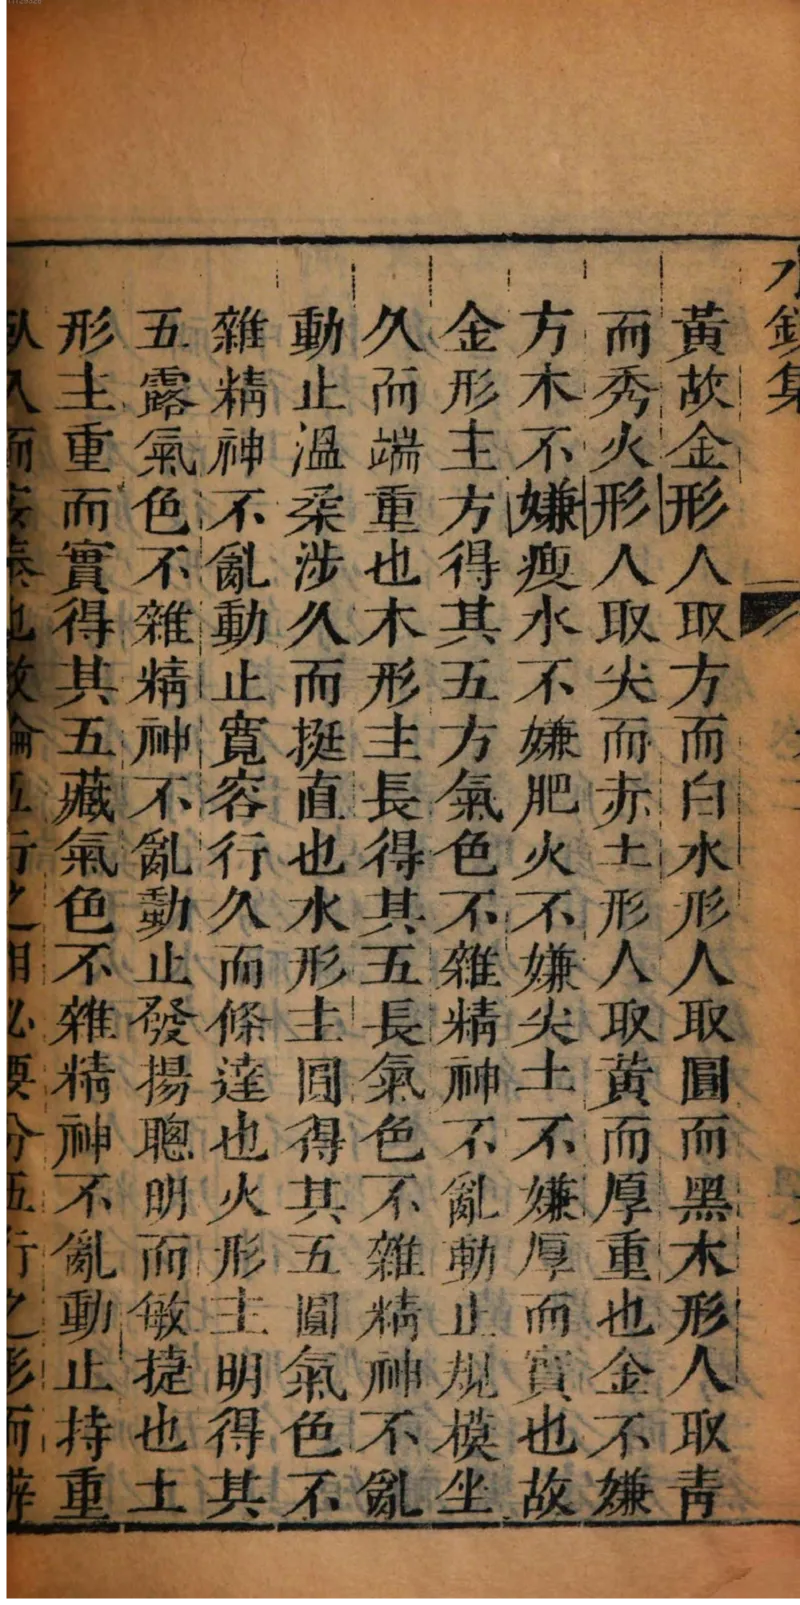 水鏡集
黃故金形人取方而白水形人取圓而黑木形人取青
而秀火形人取尖而赤土形人取黃而厚重也金不嫌
方木不嫌瘦水不嫌肥火不嫌尖土不嫌厚而實也故
金形主方得其五方氣色不雜精神不亂動止規模坐
久而端重也木形主長得其五長氣色不雜精神不亂
動止溫柔涉久而挺直也水形主圓得其五圓氣色不
雜精神不亂動止寬容行久而條達也火形主明得其
五露氣色不雜精神不亂動止發揚聰明而敏捷也土
形主重而實得其五藏氣色不雜精神不亂動止持重
臥久而安泰也故論五行之相必要分五行之形而辨